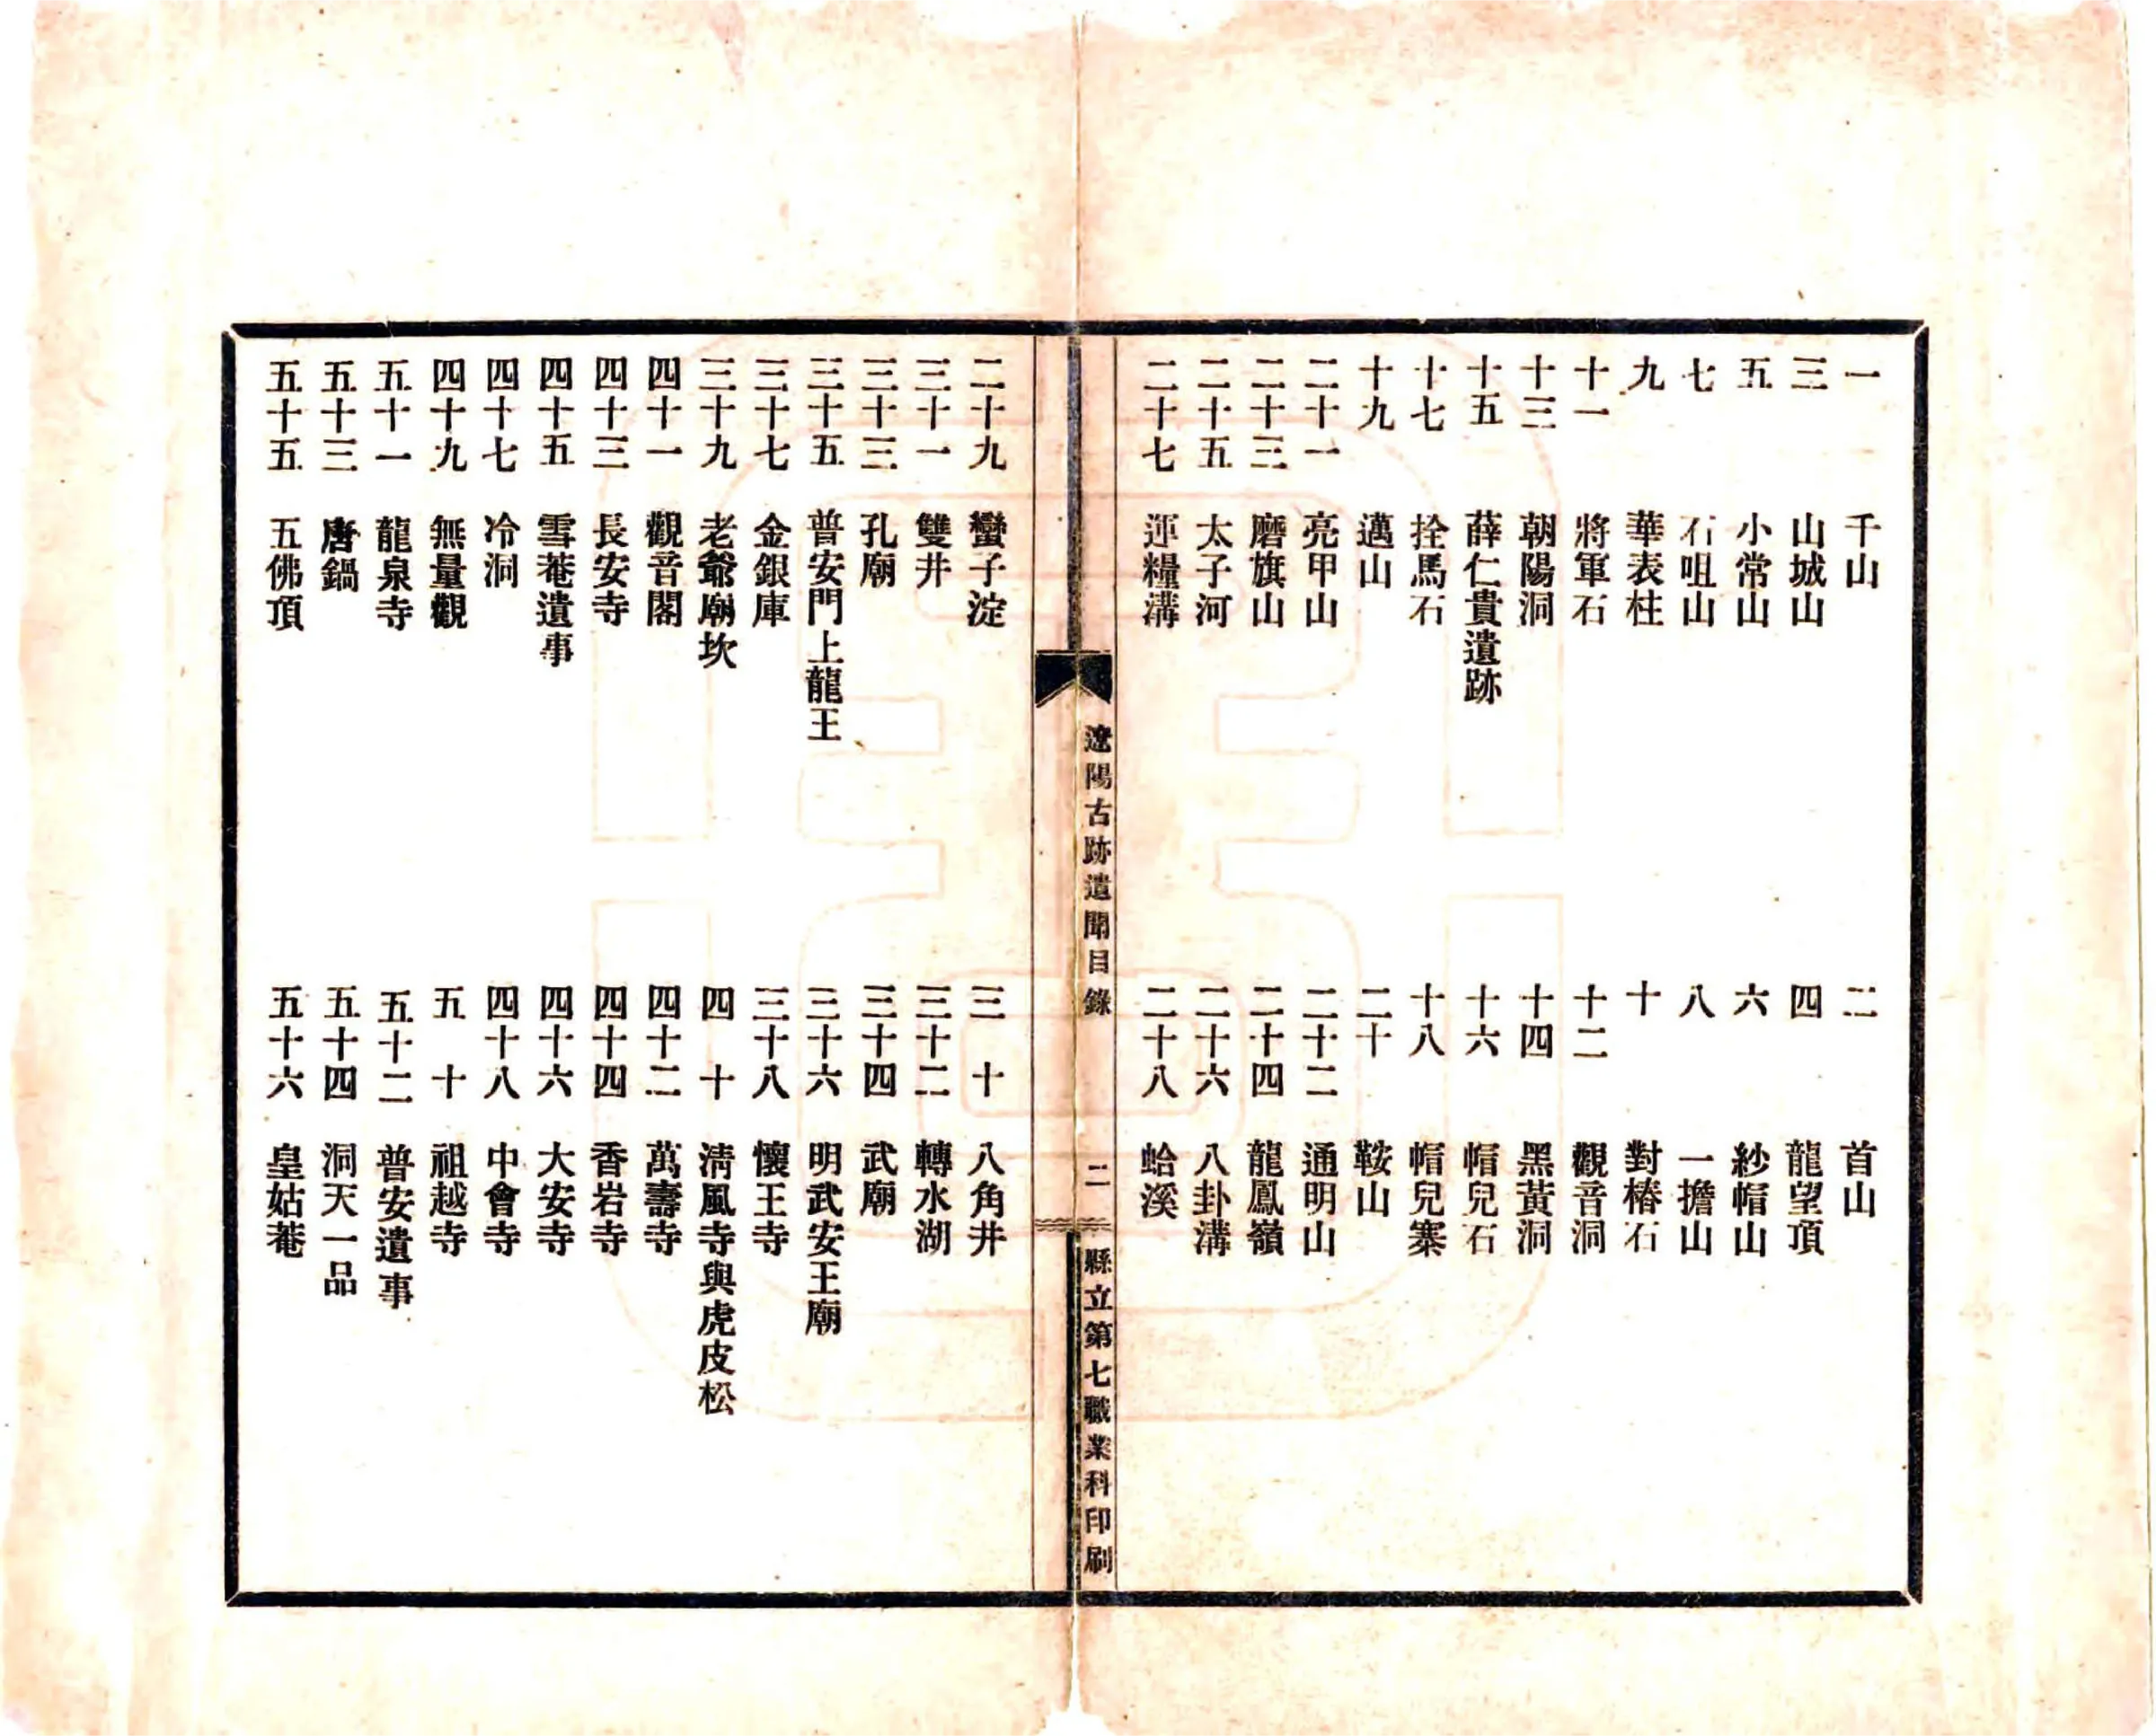 一　千山　二　首山
三　山城山　四　龍望頂
五　小常山　六　紗帽山
七　石咀山　八　一擔山
九　華表柱　十　對樁石
十一　將軍石　十二　觀音洞
十三　朝陽洞　十四　黑黃洞
十五　薛仁貴遺跡　十六　帽兒石
十七　拴馬石　十八　帽兒寨
十九　邁山　二十　鞍山
二十一　亮甲山　二十二　通明山
二十三　磨旗山　二十四　龍鳳嶺
二十五　太子河　二十六　八卦溝
二十七　運糧溝　二十八　蛤溪
遼陽古跡遺聞目錄　二　縣立第七職業科印刷
二十九　蠻子淀　三十　八角井
三十一　雙井　三十二　轉水湖
三十三　孔廟　三十四　武廟
三十五　普安門上龍王　三十六　明武安王廟
三十七　金銀庫　三十八　懷王寺
三十九　老爺廟坎　四十　清風寺與虎皮松
四十一　觀音閣　四十二　萬壽寺
四十三　長安寺　四十四　香岩寺
四十五　雪菴遺事　四十六　大安寺
四十七　冷洞　四十八　中會寺
四十九　無量觀　五十　祖越寺
五十一　龍泉寺　五十二　普安遺事
五十三　唐鍋　五十四　洞天一品
五十五　五佛頂　五十六　皇姑菴